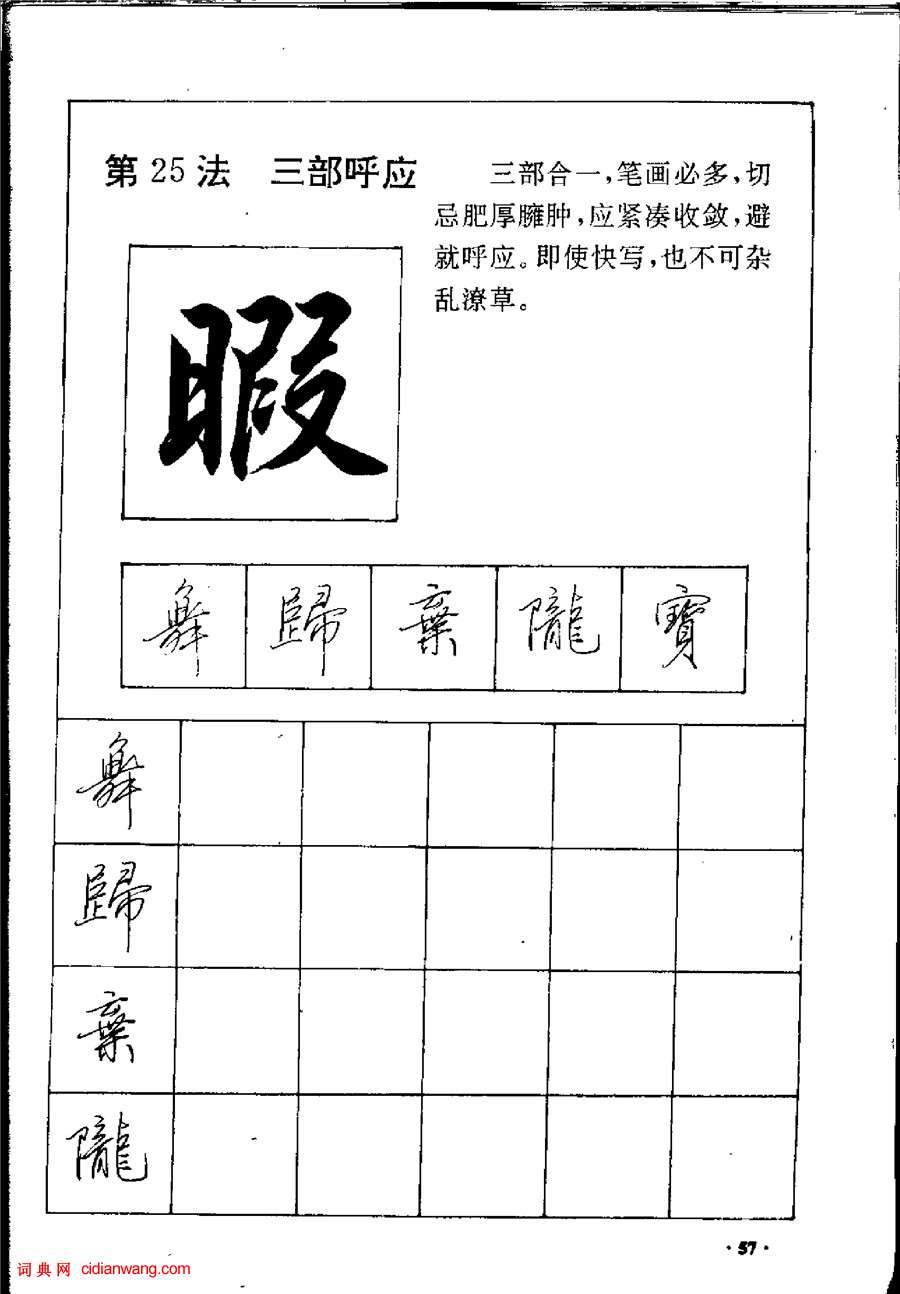 第25法 三部呼应
三部合一,笔画必多,切
忌肥厚臃肿,应紧凑收敛,避
就呼应。即使快写,也不可杂
乱潦草。
暇
舞 歸 棄 隴 寶
舞
歸
棄
隴
·57·
词典网 cidianwang.com